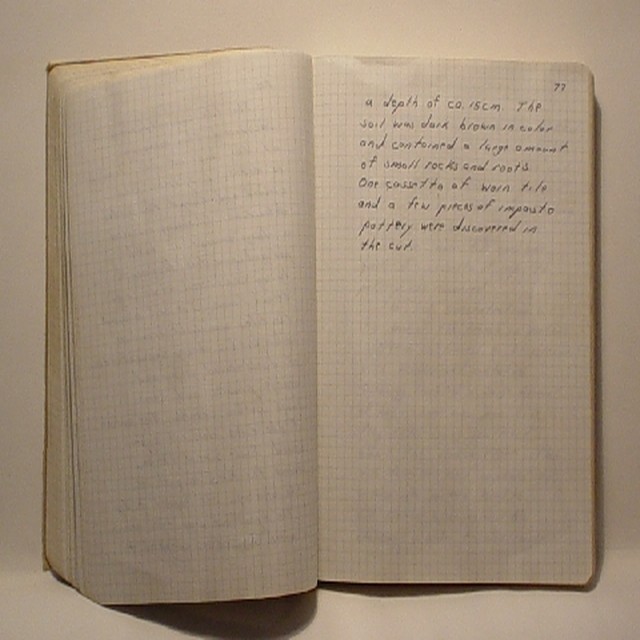 77
a depth of ca. 15cm. The
soil was dark brown in color
and contained a large amount
of small rocks and roots.
One cassetta of worn tile
and a few pieces of impasto
pottery were discovered in
the cut.